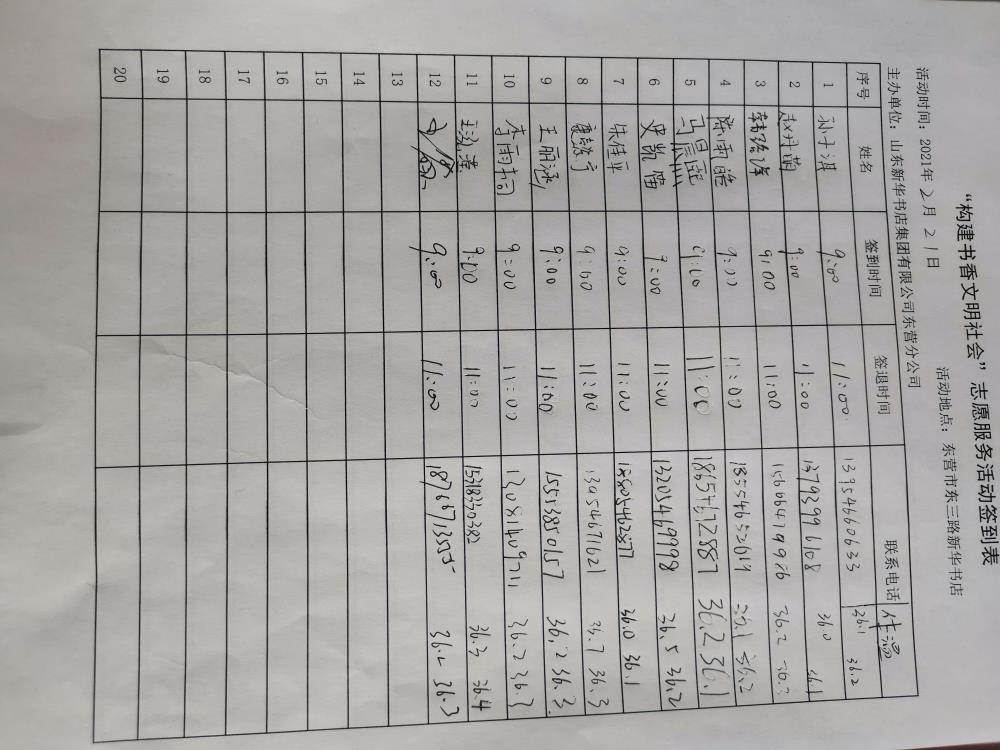 “构建书香文明社会”志愿服务活动签到表
活动时间：2021年2月21日 活动地点：东营市东三路新华书店
主办单位：山东新华书店集团有限公司东营分公司
序号 姓名 签到时间 签退时间 联系电话 体温
1 孙才淇 9:00 11:00 13954660633 36.1 36.2
2 赵丹萌 9:00 11:00 13793996108 36.0 36.1
3 韩 9:00 11:00 15606479986 36.2 36.3
4 陈雨皓 9:00 11:00 18554652619 36.1 36.2
5 马 9:00 11:00 18654672887 36.2 36.1
6 史凯 9:00 11:00 13205469998 36.5 36.2
7 朱佳平 9:00 11:00 36.0 36.1
8 9:00 11:00 13954671621 36.7 36.3
9 王丽涵 9:00 11:00 15553850157 36.2 36.3
10 李雨桐 9:00 11:00 13081409711 36.2 36.3
11 9:00 11:00 15318330382 36.3 36.4
12 9:00 11:00 18766713555 36.2 36.3
13
14
15
16
17
18
19
20